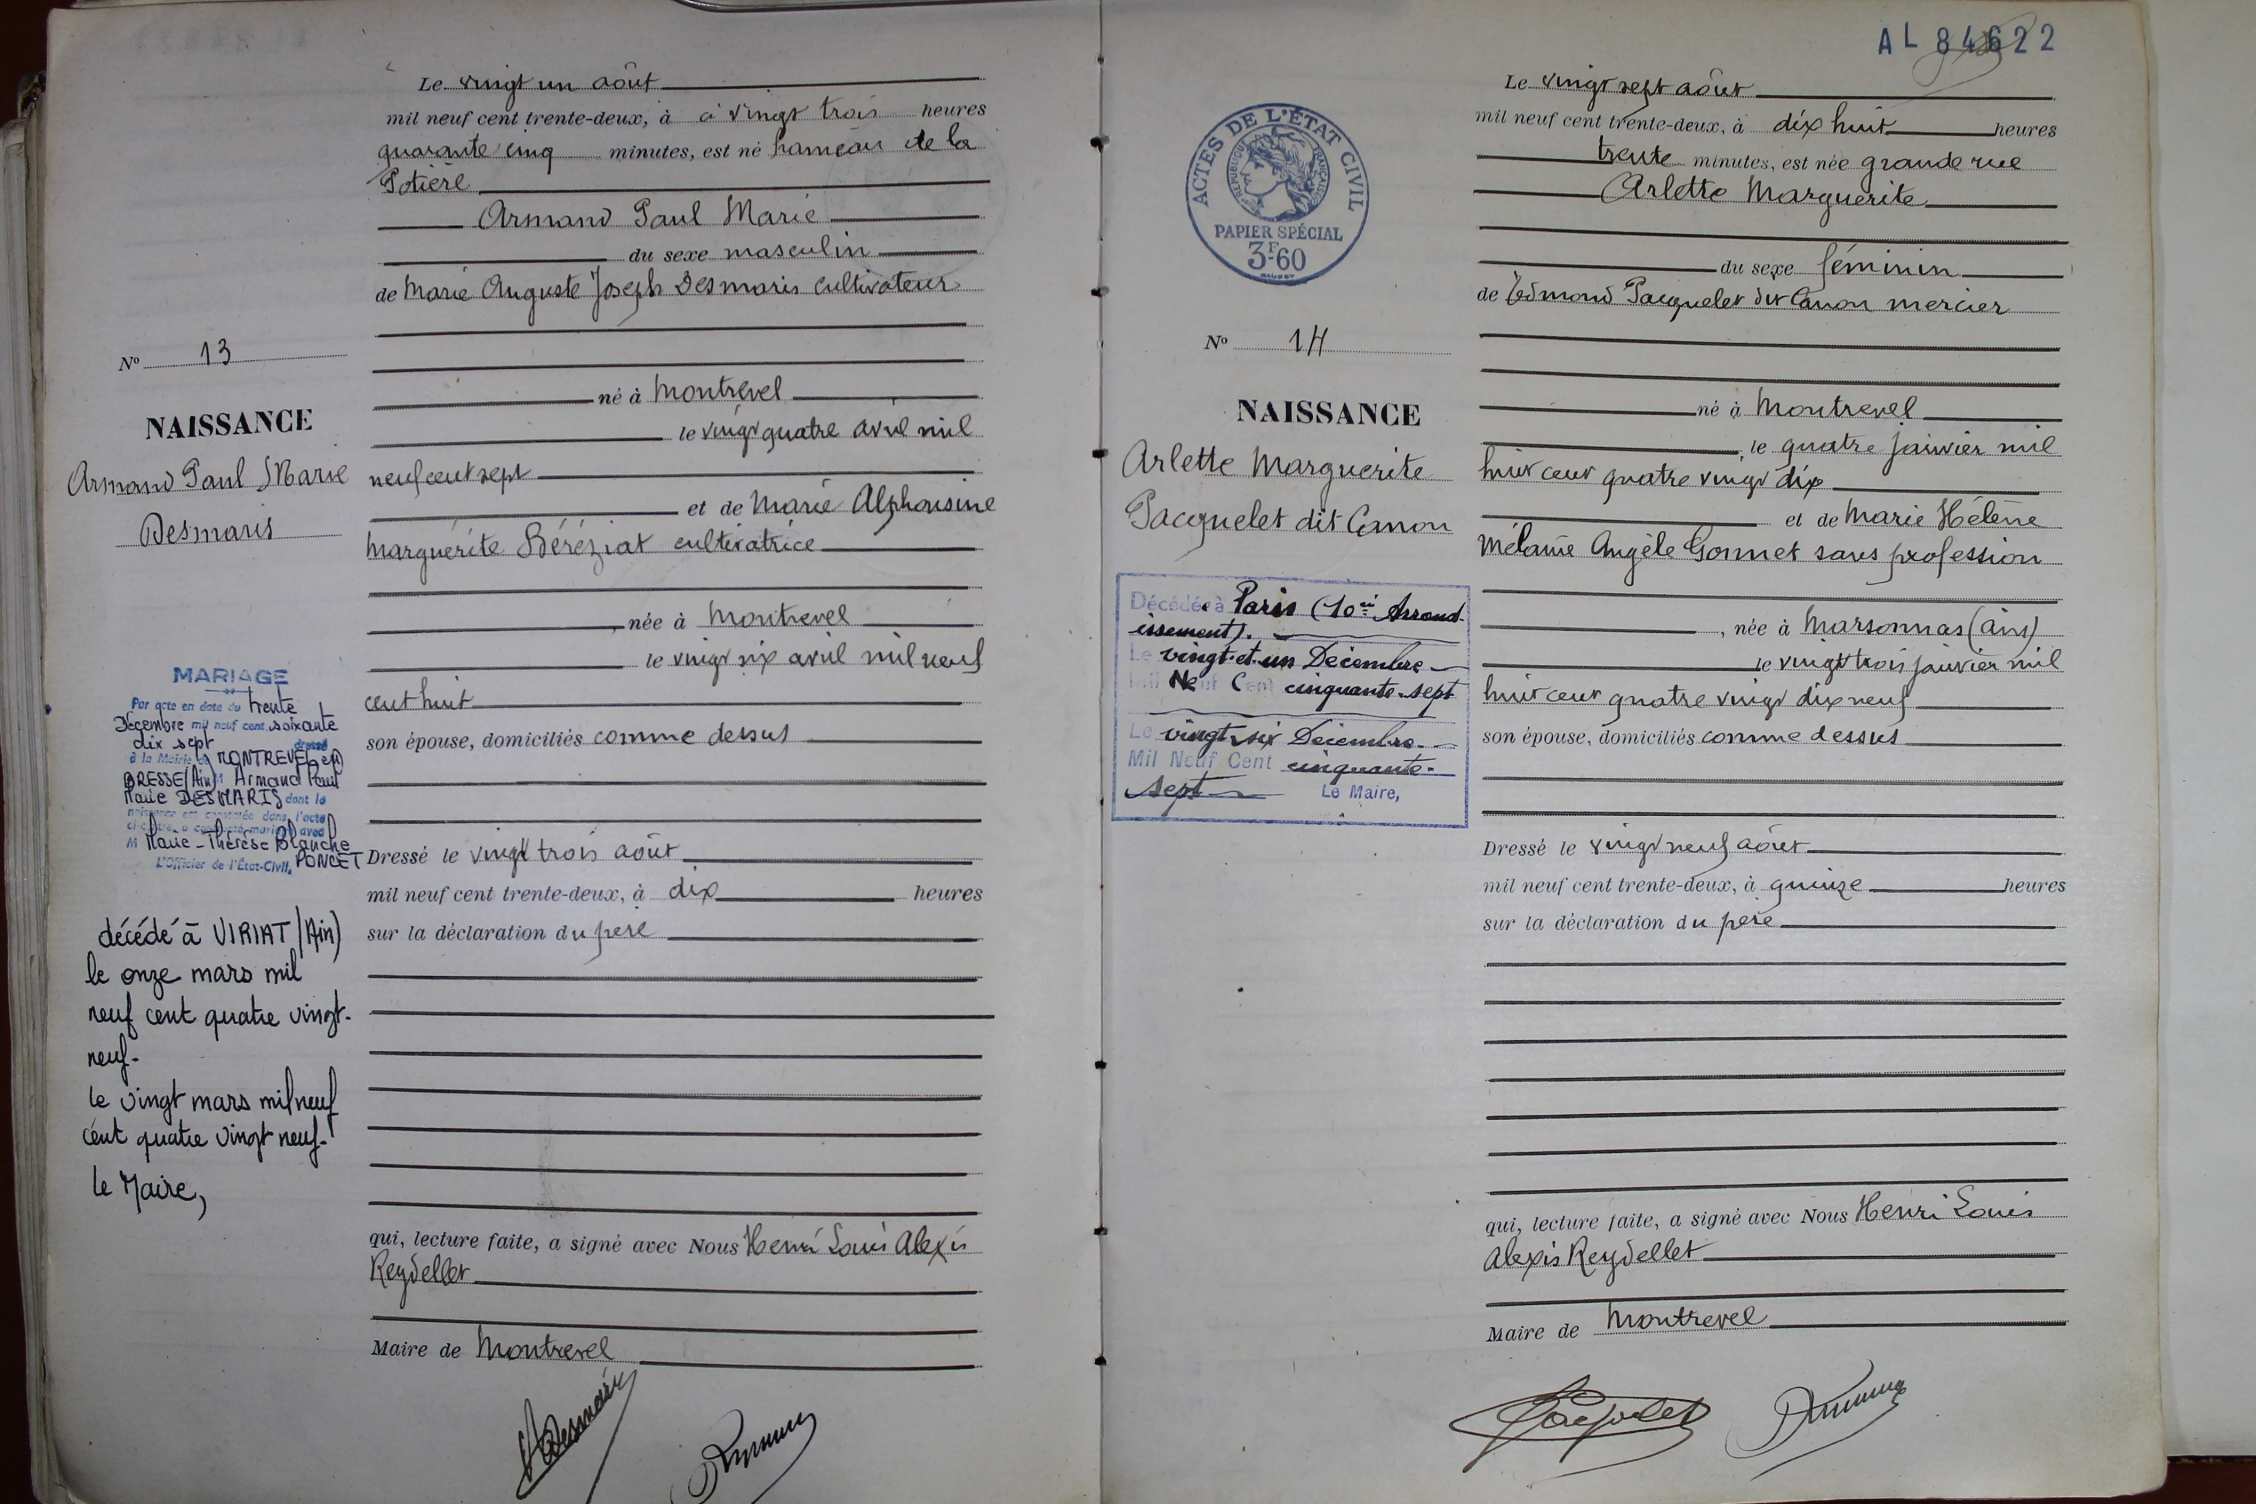 Le vingt un août
mil neuf cent trente-deux, à à vingt trois heures
quarante cinq minutes, est né hameau de la
Potière
Armand Paul Marie
du sexe masculin
de Marie Auguste Joseph Desmaris cultivateur
né à Montrevel
le vingt quatre avril mil
neuf cent sept
et de Marie Alphonsine
Marguerite Béréziat cultivatrice
née à Montrevel
le vingt six avril mil neuf
cent huit
son épouse, domiciliés comme dessus
Dressé le vingt trois août
mil neuf cent trente-deux, à dix heures
sur la déclaration du père
qui, lecture faite, a signé avec Nous Henri Louis Alexis
Reydellet
Maire de Montrevel
Nº 13
NAISSANCE
Armand Paul Marie
Desmaris
MARIAGE
Par acte en date du trente
Décembre mil neuf cent soixante
dix sept dressé
à la Mairie de MONTREVEL en
BRESSE (Ain) M Armand Paul
Marie DESMARIS dont la
naissance est constatée dans l'acte
ci-contre, a contracté mariage avec
M Marie-Thérèse Blanche
L'Officier de l'État-Civil, PONCET
décédé à VIRIAT (Ain)
le onze mars mil
neuf cent quatre vingt-
neuf-
le vingt mars mil neuf
cent quatre vingt neuf-
le Maire,
AL 84622
ACTES DE L'ÉTAT CIVIL
RÉPUBLIQUE FRANÇAISE
PAPIER SPÉCIAL
3F60
Nº 14
NAISSANCE
Arlette Marguerite
Pacquelet dit Canon
Décédée à Paris (10e Arrond-
issement).
Le vingt-et-un Décembre
Mil Neuf Cent cinquante-sept
Le vingt-six Décembre
Mil Neuf Cent cinquante-
sept Le Maire,
Le vingt sept août
mil neuf cent trente-deux, à dix huit heures
trente minutes, est née grande rue
Arlette Marguerite
du sexe féminin
de Edmond Pacquelet dit Canon mercier
né à Montrevel
le quatre janvier mil
huit cent quatre vingt dix
et de Marie Hélène
Mélanie Angèle Gonnet sans profession
, née à Marsonnas (Ain)
le vingt trois janvier mil
huit cent quatre vingt dix neuf
son épouse, domiciliés comme dessus
Dressé le vingt neuf août
mil neuf cent trente-deux, à quinze heures
sur la déclaration du père
qui, lecture faite, a signé avec Nous Henri Louis
Alexis Reydellet
Maire de Montrevel